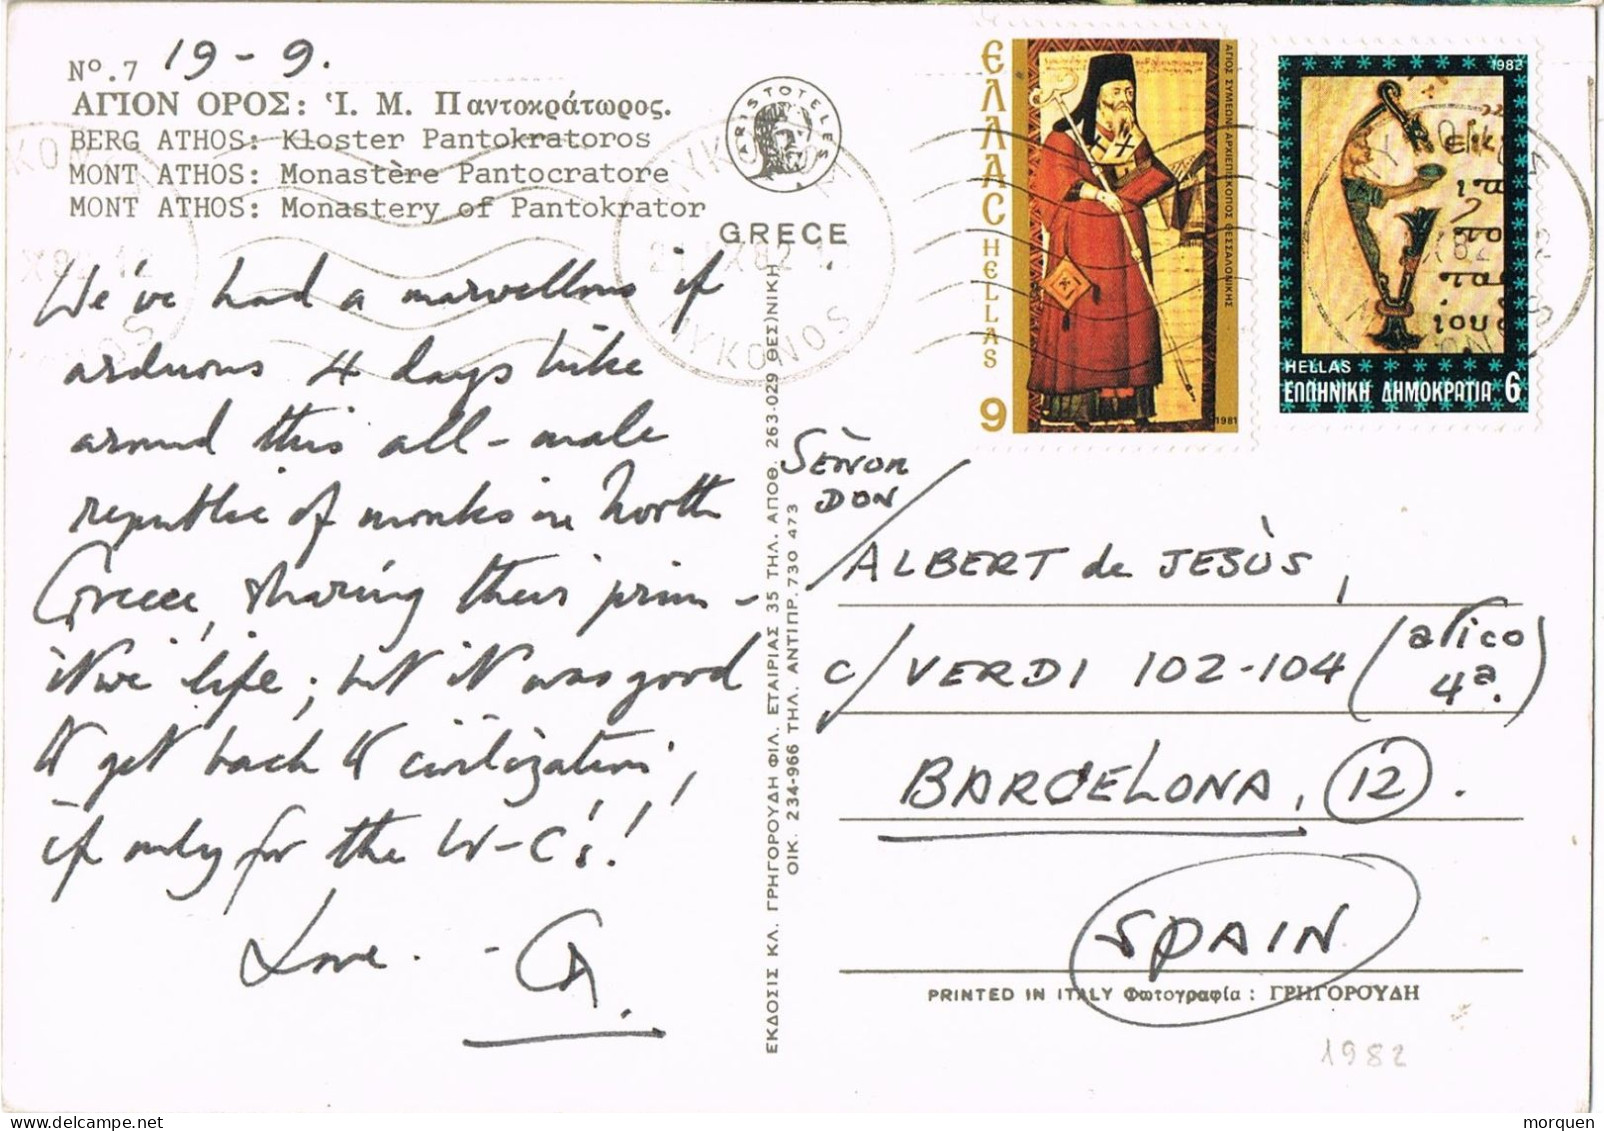 Nº.7 19-9.
ΑΓΙΟΝ ΟΡΟΣ: Ἱ. Μ. Παντοκράτωρος.
BERG ATHOS: Kloster Pantokratoros
MONT ATHOS: Monastère Pantocratore
MONT ATHOS: Monastery of Pantokrator
ARISTOTELES
GRECE
We've had a marvellous if
arduous 4 days hike
around this all-male
republic of monks in North
Greece, sharing their prim-
itive life; but it was good
to get back to civilization,
if only for the W-C's!
Love. - G.
ΕΚΔΟΣΙΣ ΚΛ. ΓΡΗΓΟΡΟΥΔΗ ΦΙΛ. ΕΤΑΙΡΙΑΣ 35 ΤΗΛ. ΑΠΟΘ. 263-029 ΘΕΣ/ΝΙΚΗ
ΟΙΚ. 234-966 ΤΗΛ. ΑΝΤΙΠΡ. 730 473
ΕΛΛΑΣ HELLAS
9
ΑΓΙΟΣ ΣΥΜΕΩΝ ΑΡΧΙΕΠΙΣΚΟΠΟΣ ΘΕΣΣΑΛΟΝΙΚΗΣ
1981
1982
HELLAS
ΕΛΛΗΝΙΚΗ ΔΗΜΟΚΡΑΤΙΑ 6
ΜΥΚΟΝΟΣ
MYKONOS
SÈNOR
DON
ALBERT de JESÙS,
c/ VERDI 102-104 (atico
4ª.)
BARCELONA, 12.
SPAIN
PRINTED IN ITALY Φωτογραφία : ΓΡΗΓΟΡΟΥΔΗ
1982
morquen